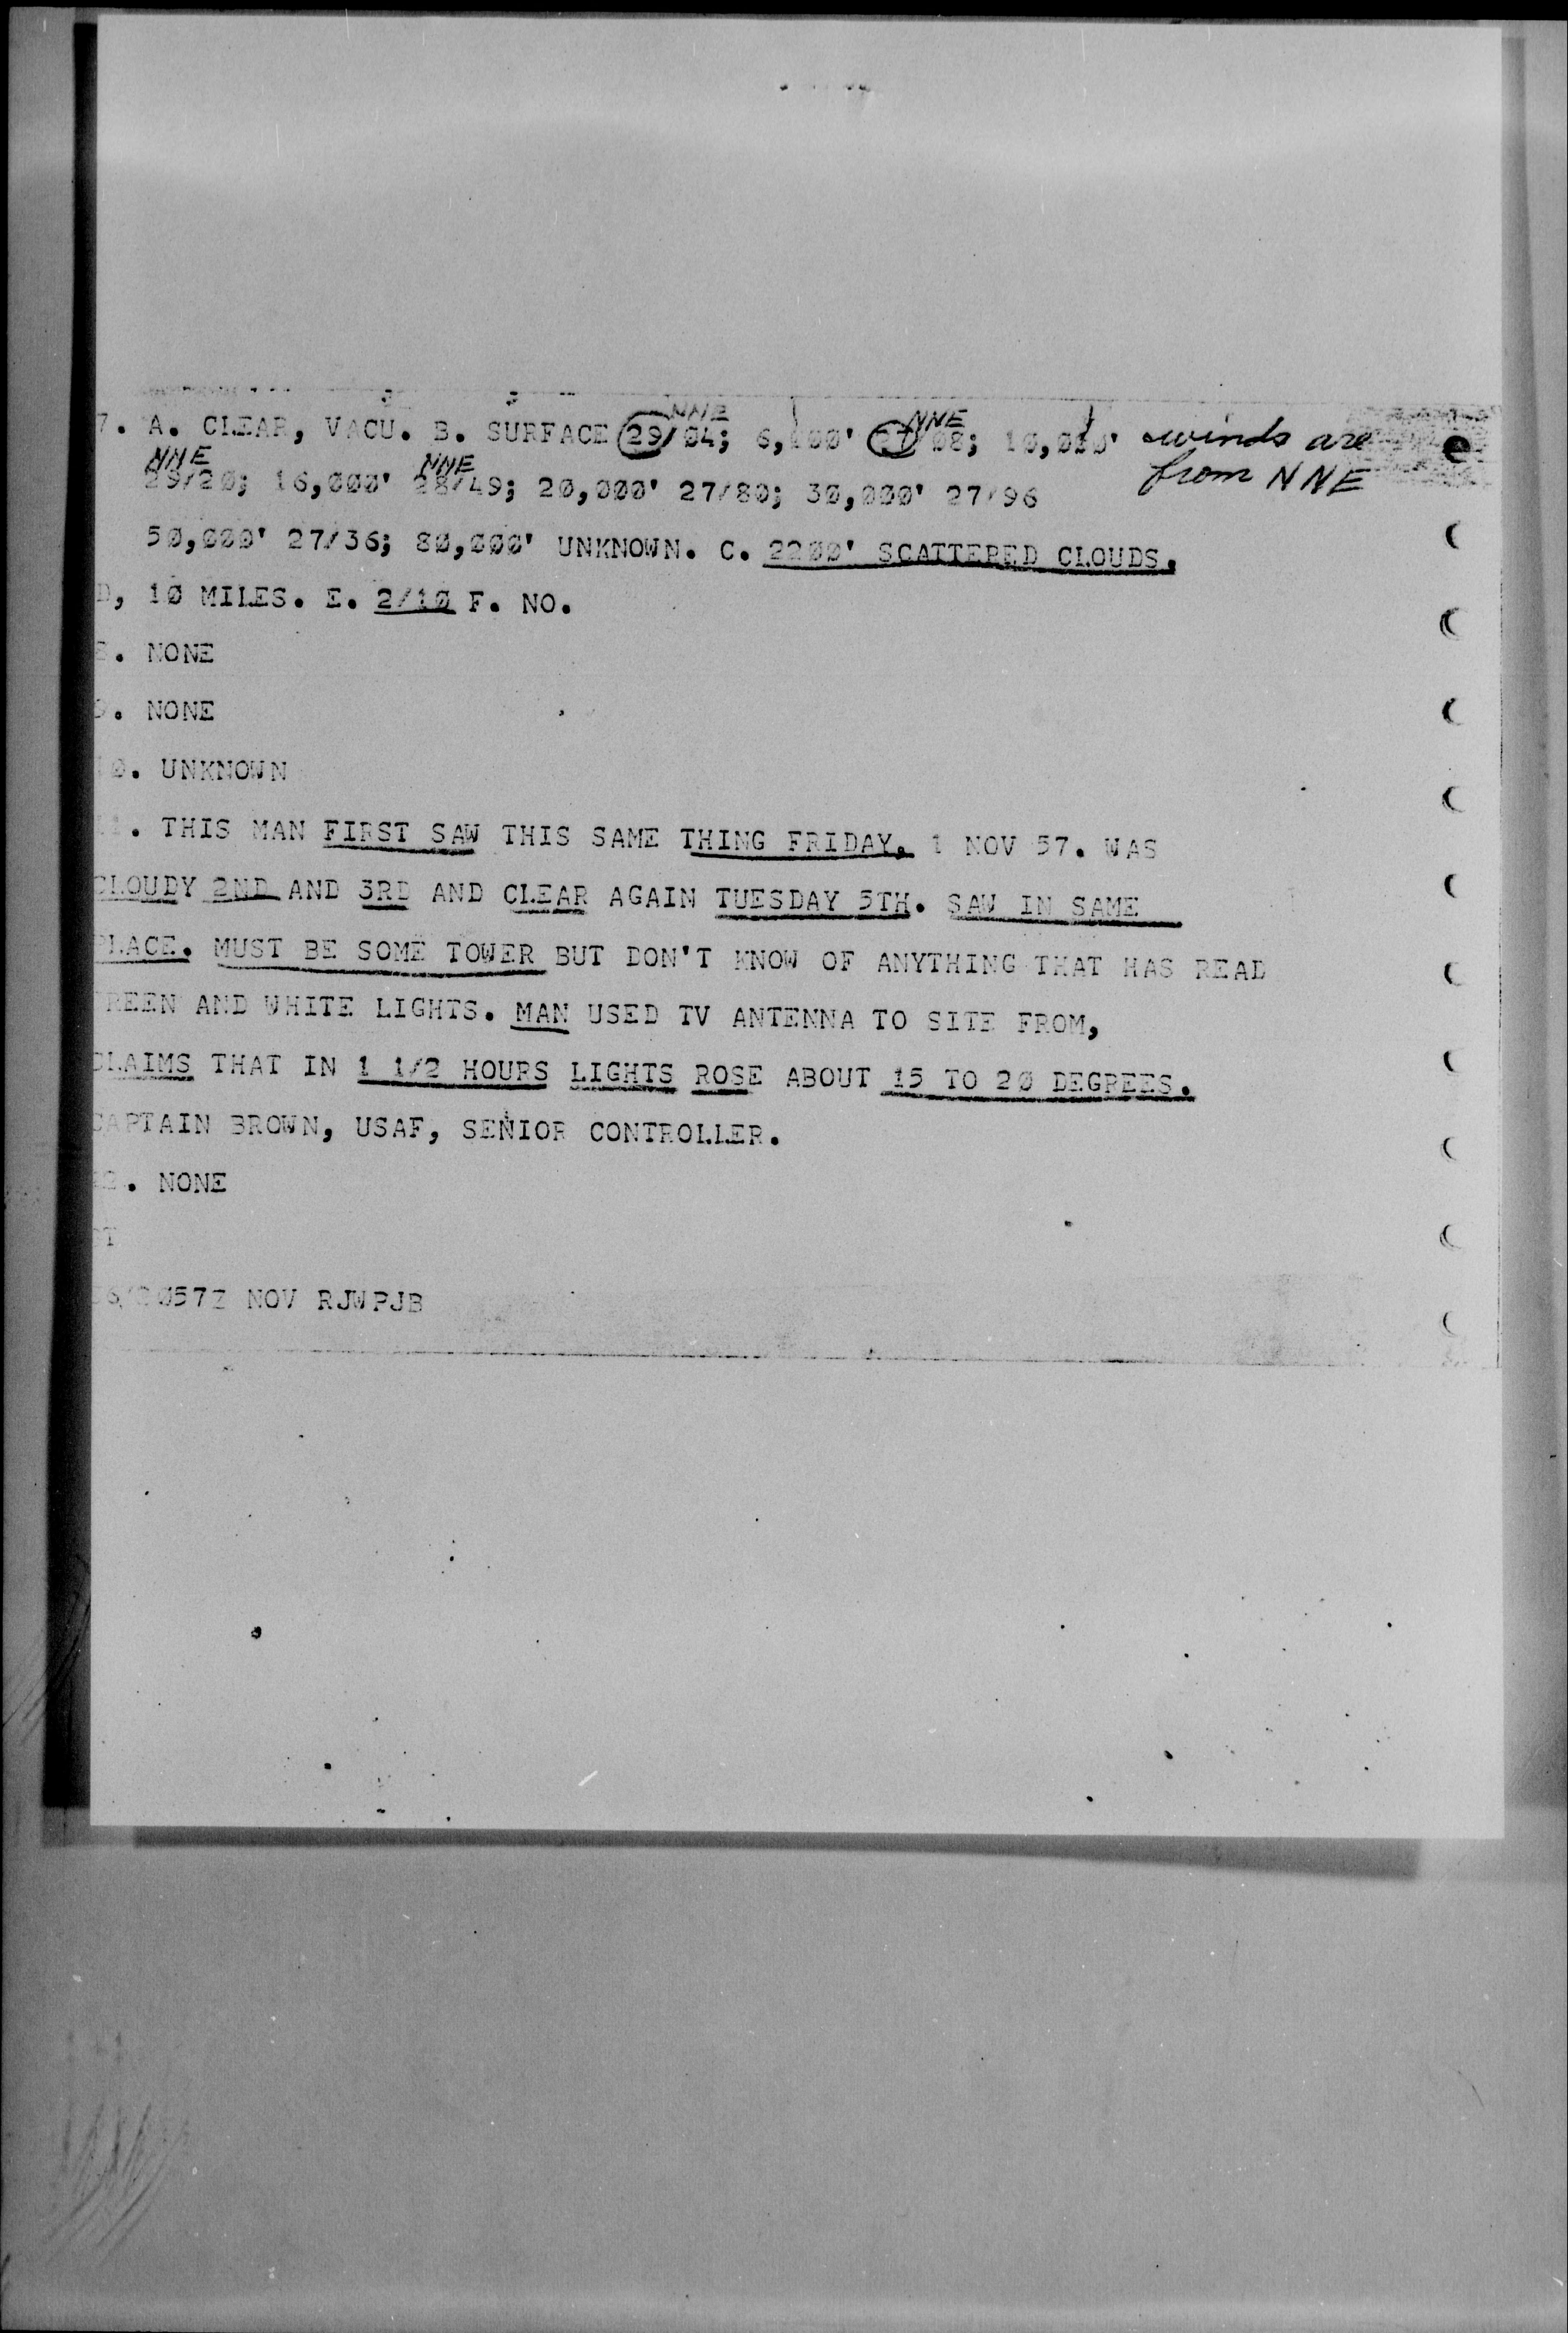 7. A. CLEAR, VACU. B. SURFACE 29/04; 6,000' 27/08; 10,000' winds are
NNE NNE
29/20; 16,000' 28/49; 20,000' 27/80; 30,000' 27/96 from NNE
NNE NNE
50,000' 27/36; 80,000' UNKNOWN. C. 2200' SCATTERED CLOUDS.
D, 10 MILES. E. 2/10 F. NO.
8. NONE
9. NONE
10. UNKNOWN
11. THIS MAN FIRST SAW THIS SAME THING FRIDAY, 1 NOV 57. WAS
CLOUDY 2ND AND 3RD AND CLEAR AGAIN TUESDAY 5TH. SAW IN SAME
PLACE. MUST BE SOME TOWER BUT DON'T KNOW OF ANYTHING THAT HAS READ
REEN AND WHITE LIGHTS. MAN USED TV ANTENNA TO SITE FROM,
CLAIMS THAT IN 1 1/2 HOURS LIGHTS ROSE ABOUT 15 TO 20 DEGREES.
CAPTAIN BROWN, USAF, SENIOR CONTROLLER.
12. NONE
T
2057Z NOV RJWPJB